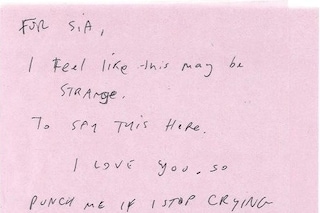 FOR SiA,
I feel like this may be
STRANGE.
To SAY THIS HERE.
I LOVE YOU. SO
PUNCH ME IF I STOP CRYING